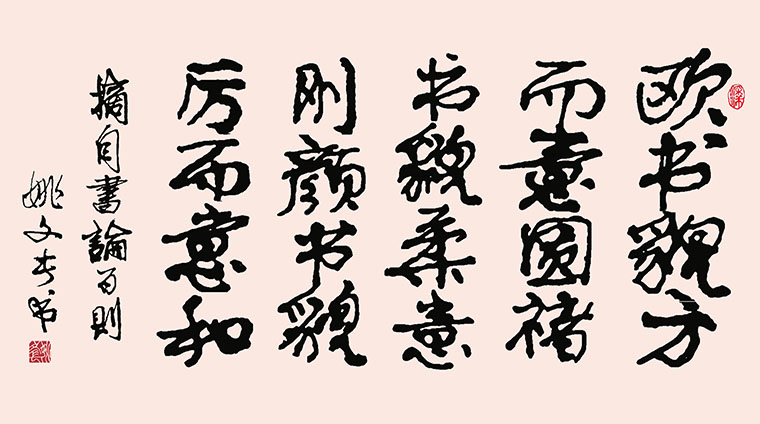 欧书貌方
而意圆褚
书貌柔意
刚颜书貌
厉而意和
摘自書論百則
姚文书